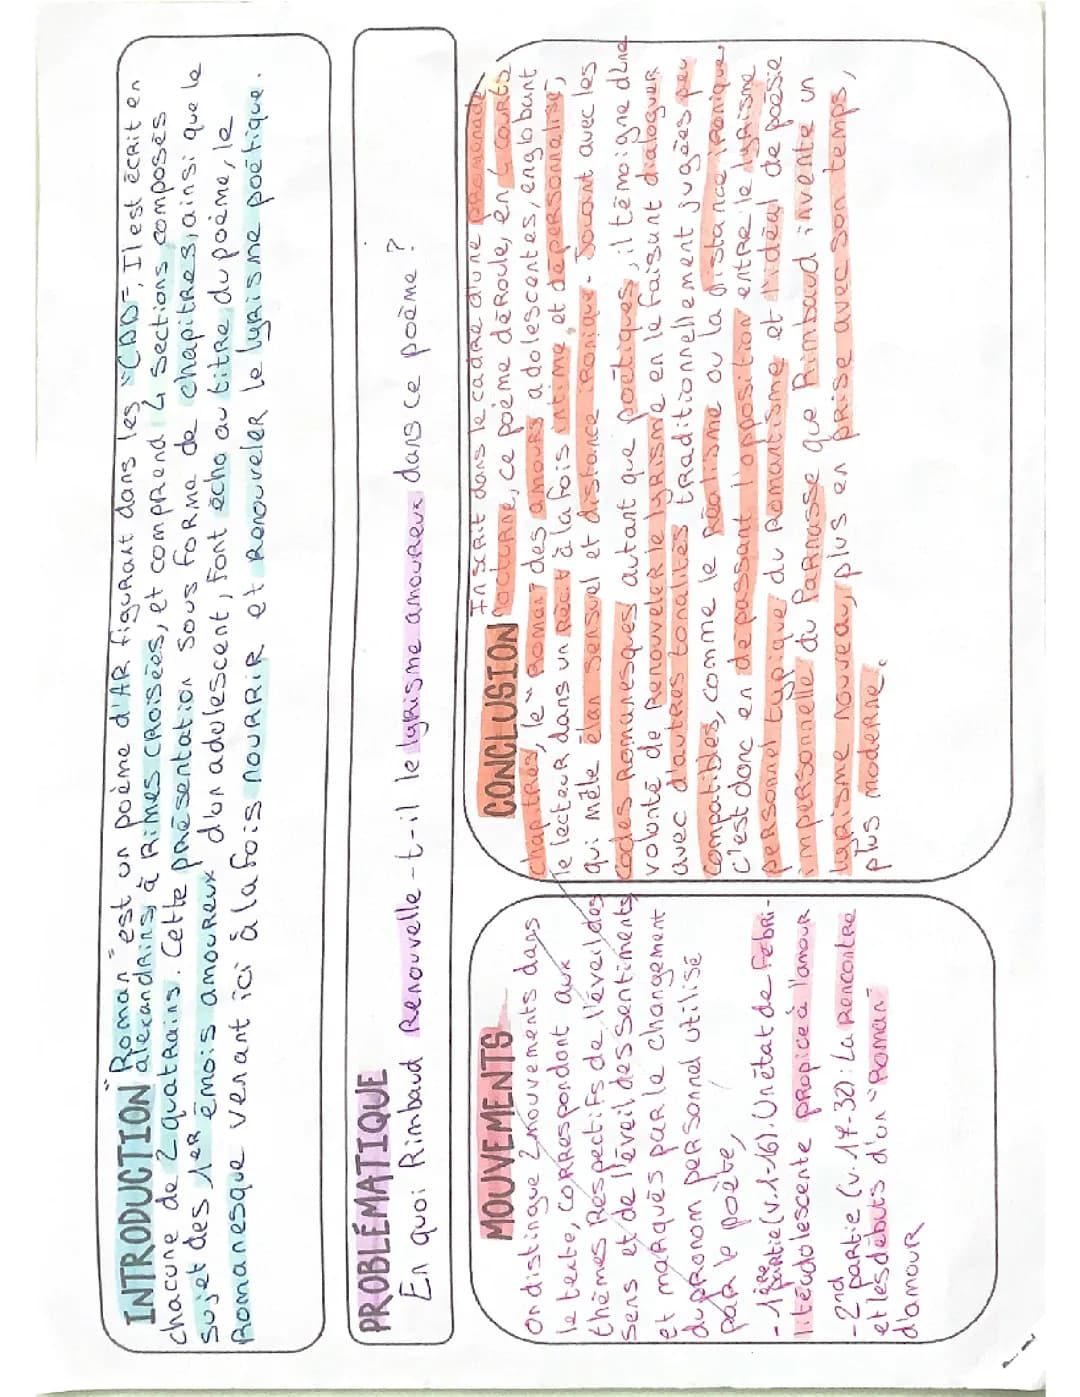 INTRODUCTION "Roman" est un poème d'AR figurant dans les "CDD", Il est écrit en
alexandrins, à Rimes croisées, et comprend 4 sections composés
chacune de 2 quatrains. Cette présentation sous forme de chapitres, ainsi que le
sujet des 1er émois amoureux d'un adolescent, font écho au titre du poème, le
Romanesque venant ici à la fois nourrir et Renouveler le lyrisme poétique.
PROBLÉMATIQUE
En quoi Rimbaud Renouvelle-t-il le lyrisme amoureux dans ce poème ?
MOUVEMENTS
On distingue 2 mouvements dans
le texte, correspondant aux
thèmes Respectifs de l'éveil des
sens et de l'éveil des sentiments
et marqués par le changement
du pronom personnel utilisé
par le poète,
- 1ère partie (v.1-16). Un état de fébri-
lité adolescente propice à l'amour
- 2nd partie (v. 17-32) : La Rencontre
et les débuts d'un "Roman
d'amour
CONCLUSION Inscrit dans le cadre d'une promenade
nocturne, ce poème déroule, en 4 courts
chapitres, le "Roman" des amours adolescentes, englobant
le lecteur dans un Récit à la fois intime et dépersonnalisé,
qui mêle élan sensuel et distance ironique. Jouant avec les
codes Romanesques autant que poétiques, il témoigne d'une
volonté de Renouveler le lyrisme en le faisant dialoguer
avec d'autres tonalités traditionnellement jugées peu
compatibles, comme le Réalisme ou la distance ironique,
c'est donc en dépassant l'opposition entre le lyrisme
personnel typique du Romantisme et l'idéal de poésie
impersonnelle du Parnasse que Rimbaud invente un
lyrisme nouveau, plus en prise avec son temps,
plus moderne.